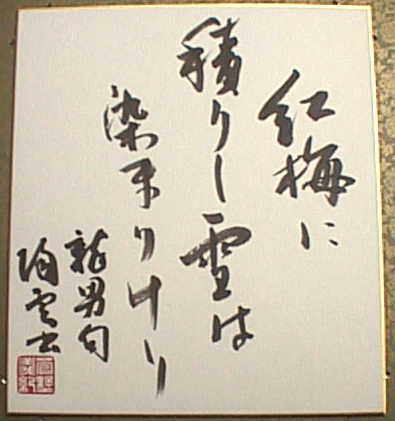 紅梅に
積りし雪は
染まりけり
龍男句